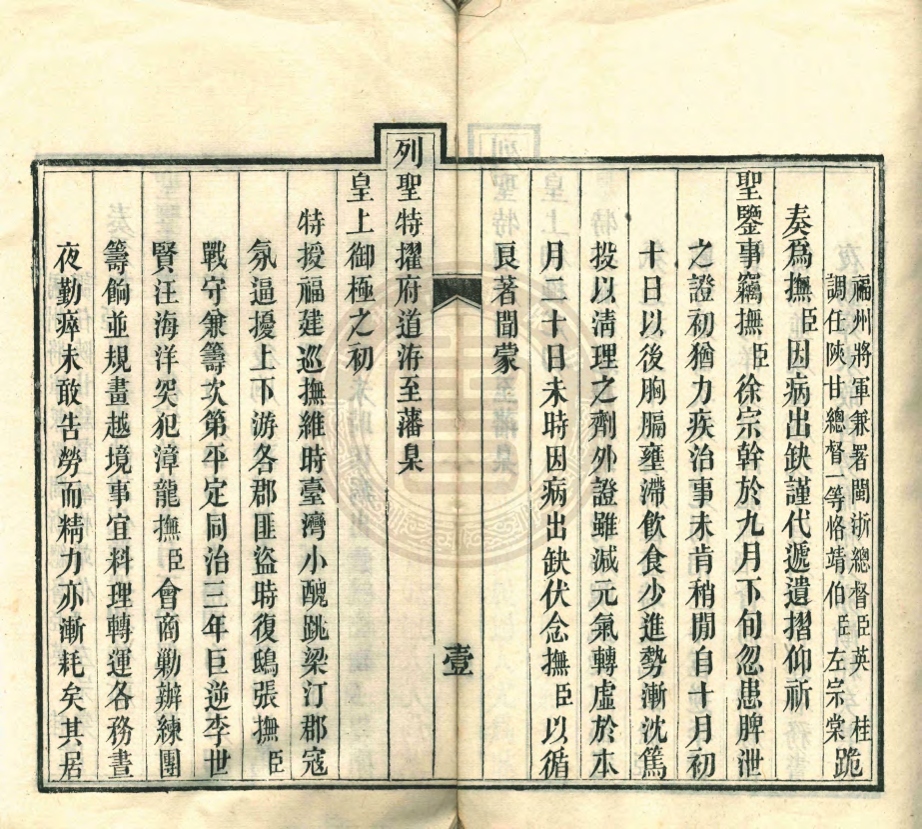 福州將軍兼署閩浙總督臣英 桂
調任陜甘總督一等恪靖伯臣左宗棠跪
奏爲撫臣因病出缺謹代遞遺摺仰祈
聖鑒事竊撫臣徐宗幹於九月下旬忽患脾泄
之證初猶力疾治事未肯稍閒自十月初
十日以後胸膈壅滯飲食少進勢漸沈篤
投以清理之劑外證雖減元氣轉虛於本
月二十日未時因病出缺伏念撫臣以循
良著聞蒙
壹
列聖特擢府道洊至藩臬
皇上御極之初
特授福建巡撫維時臺灣小醜跳梁汀郡寇
氛逼擾上下游各郡匪盜時復鴟張撫臣
戰守兼籌次第平定同治三年巨逆李世
賢汪海洋突犯漳龍撫臣會商勦辦練團
籌餉並規畫越境事宜料理轉運各務晝
夜勤瘁未敢告勞而精力亦漸耗矣其居